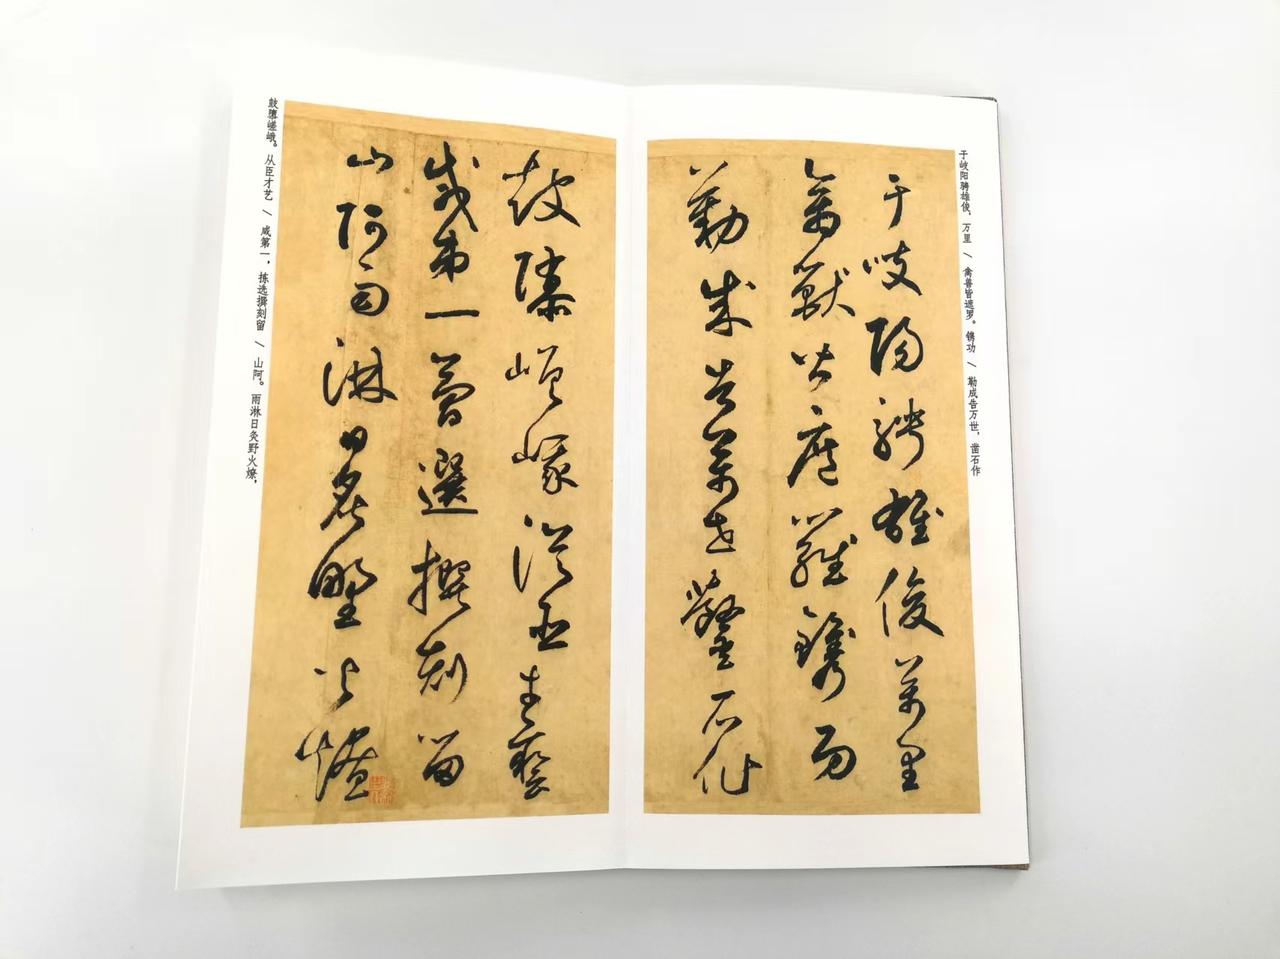 于岐阳骋雄俊，万里 / 禽兽皆遮罗。镌功 / 勒成告万世，凿石作
于岐陽騁雄俊萬里
禽獸皆遮羅鐫功
勒成告萬世鑿石作
鼓隳嵯峨從臣才藝
咸第一蕳選撰刻留
山阿雨淋日炙野火燎
鼓隳嵯峨。从臣才艺 / 咸第一，拣选撰刻留 / 山阿。雨淋日炙野火燎，